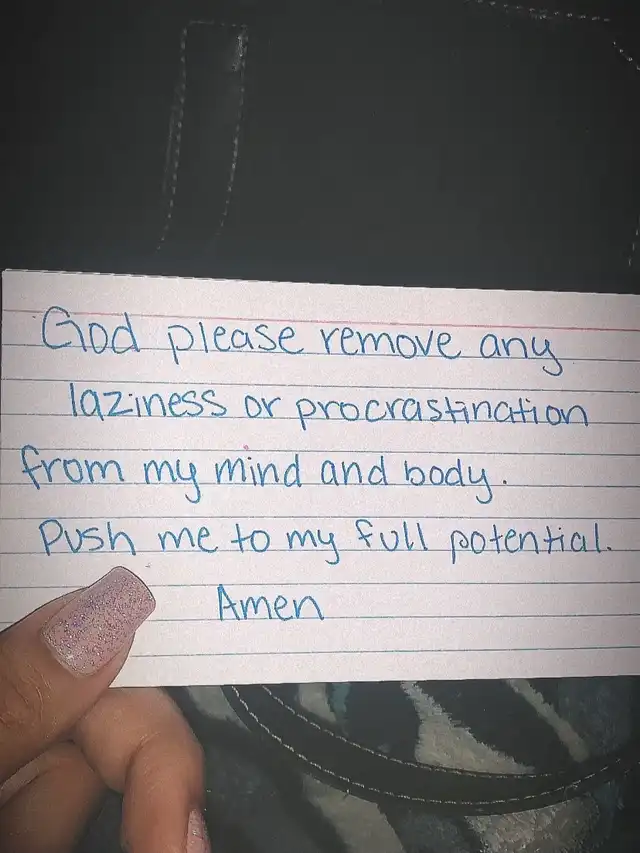 God please remove any
laziness or procrastination
from my mind and body.
Push me to my full potential.
Amen